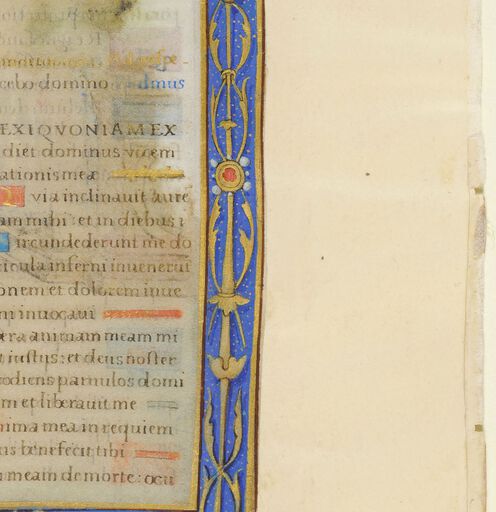 cebo domino
EXI QVONIAM EX
diet dominus vocem
ationis meæ
via inclinauit aure
am mihi : et in diebus
ircundederunt me do
icula inferni inuenerut
onem et dolorem inue
ni inuocaui
era animam meam mi
t iustus : et deus noster
odiens paruulos domi
m et liberauit me
nima mea in requiem
us benefecit tibi
m meam de morte : ocu